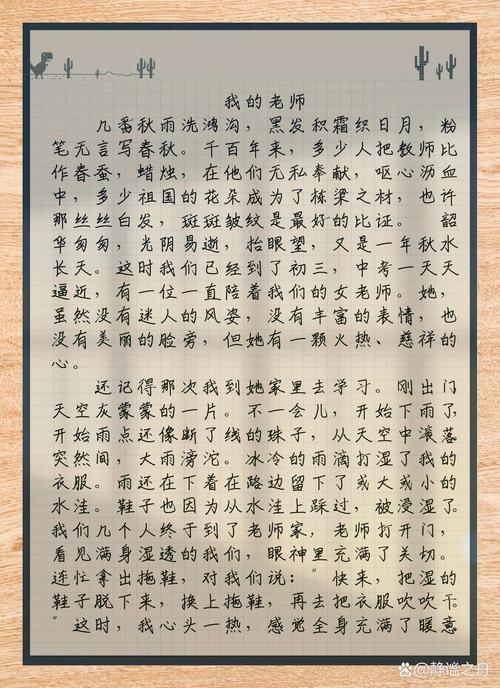 我的老师
几番秋雨洗鸿沟，黑发积霜织日月，粉
笔无言写春秋。千百年来，多少人把教师比
作春蚕，蜡烛，在他们无私奉献，呕心沥血
中，多少祖国的花朵成为了栋梁之材，也许
那丝丝白发，斑斑皱纹是最好的比证。 韶
华匆匆，光阴易逝，抬眼望，又是一年秋水
长天。这时我们已经到了初三，中考一天天
逼近，有一位一直陪着我们的女老师。她，
虽然没有迷人的风姿，没有丰富的表情，也
没有美丽的脸旁，但她有一颗火热、慈祥的
心。
还记得那次我到她家里去学习。刚出门
天空灰蒙蒙的一片。不一会儿，开始下雨了
开始雨点还像断了线的珠子，从天空中滚落
突然间，大雨滂沱。冰冷的雨滴打湿了我的
衣服。雨还在下着在路边留下了或大或小的
水洼。鞋子也因为从水洼上踩过，被浸湿了
我们几个人终于到了老师家，老师打开门，
看见满身湿透的我们，眼神里充满了关切。
连忙拿出拖鞋，对我们说："快来，把湿的
鞋子脱下来，换上拖鞋，再去把衣服吹吹干
"这时，我心头一热，感觉全身充满了暖意
静谧之舟